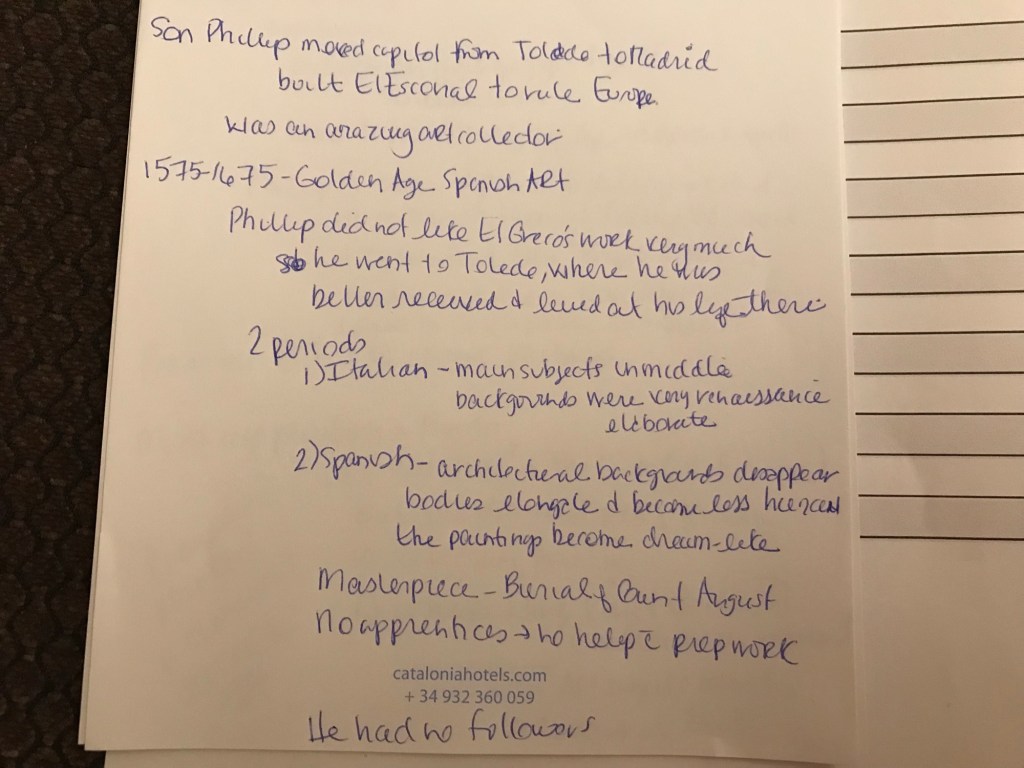 Son Phillip moved capitol from Toledo to Madrid
built El Escorial to rule Europe.
was an amazing art collector
1575-1675 - Golden Age Spanish Art
Phillip did not like El Greco's work very much
so he went to Toledo, where he was
better received & lived out his life there
2 periods
1) Italian - main subjects in middle
backgrounds were very renaissance
elaborate
2) Spanish - architectural backgrounds disappear
bodies elongate & become less
the paintings become dream-like
Masterpiece - Burial of Count August
No apprentices → no help c̄ prep work
cataloniahotels.com
+ 34 932 360 059
He had no followers